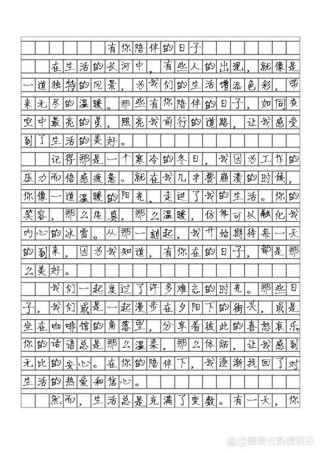 有你陪伴的日子
在生活的长河中，有些人的出现，就像是
一道独特的风景，为我们的生活增添色彩，带
来无尽的温暖。那些有你陪伴的日子，如同夜
空中最亮的星，照亮我前行的道路，让我感受
到了生活的美好。
记得那是一个寒冷的冬日，我因为工作的
压力而倍感疲惫。就在我几乎要崩溃的时候，
你像一道温暖的阳光，走进了我的生活。你的
笑容，那么纯真，那么温暖，仿佛可以融化我
内心的冰雪。从那一刻起，我开始期待每一天
的到来，因为我知道，有你在的日子，都是那
么美好。
我们一起度过了许多难忘的时光。那些日
子，我们或是一起漫步在夕阳下的街头，或是
坐在咖啡馆的角落里，分享着彼此的喜怒哀乐
你的话语总是那么温柔，那么体贴，让我感到
无比的安心。在你的陪伴下，我逐渐找回了对
生活的热爱和信心。
然而，生活总是充满了变数。有一天，你